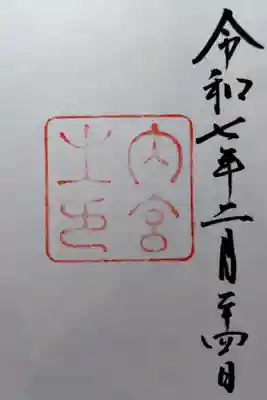 令和七年二月二十四日
内宮
之印